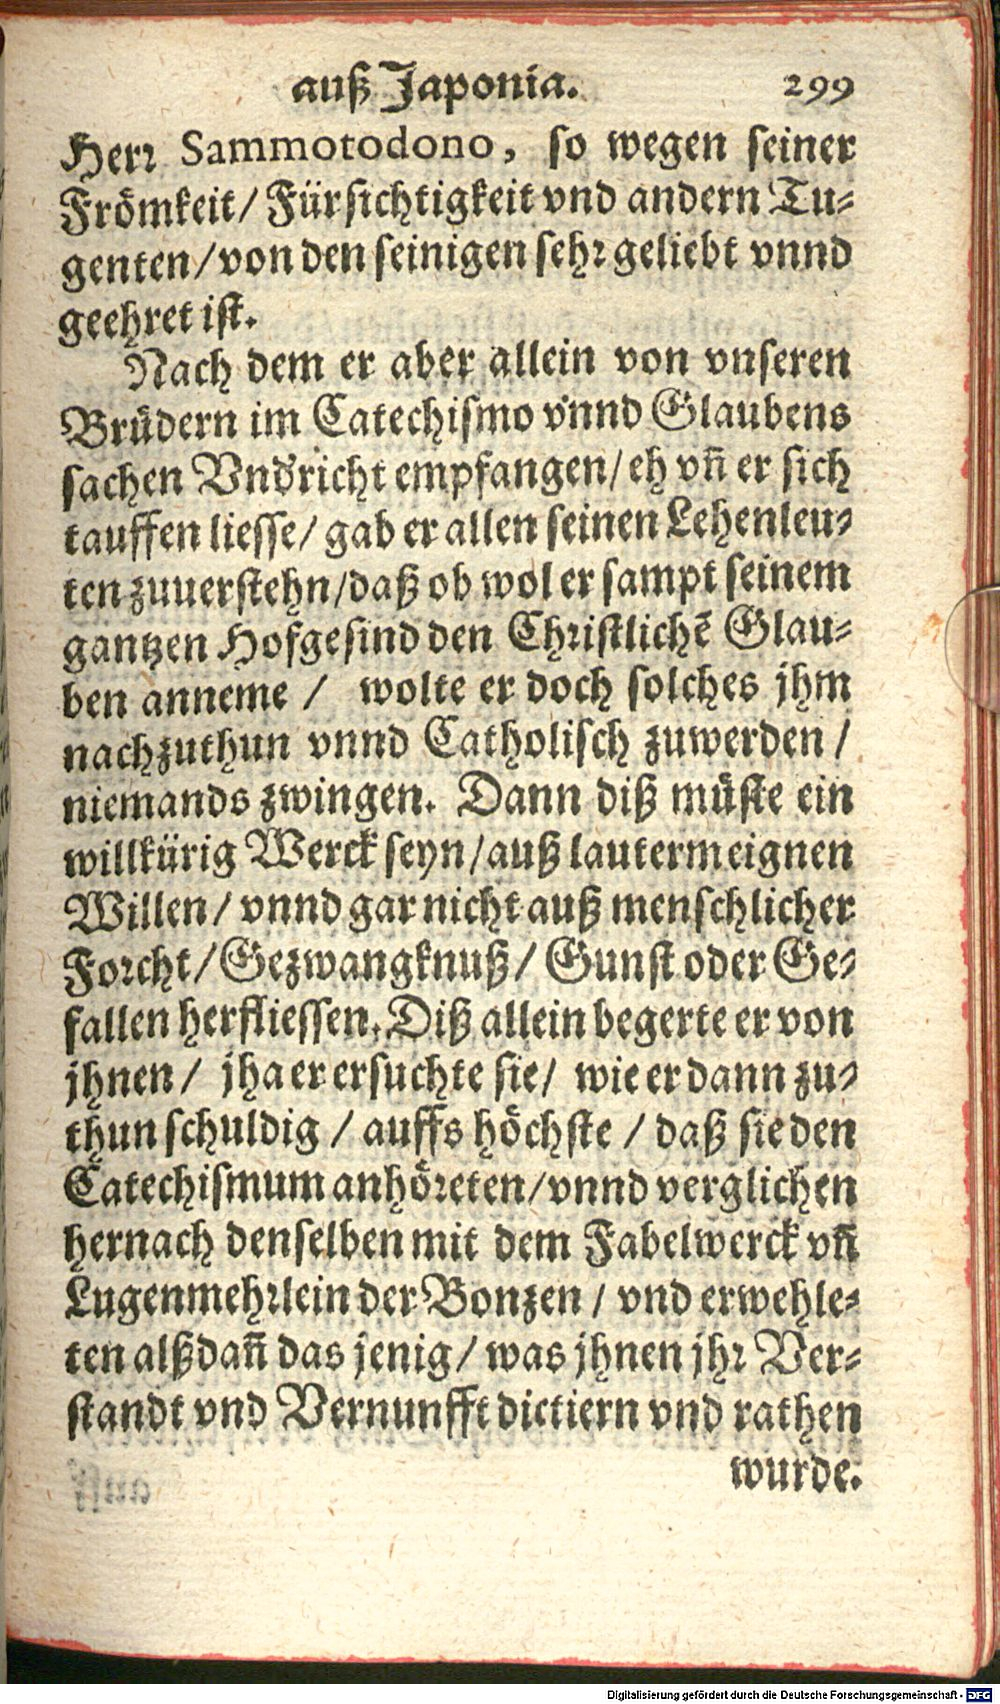 auß Japonia. 299
Herr Sammotodono, so wegen seiner
Frömkeit/ Fürsichtigkeit vnd andern Tu-
genten/von den seinigen sehr geliebt vnnd
geehret ist.
Nach dem er aber allein von vnseren
Brüdern im Catechismo vnnd Glaubens
sachen Vndꝛicht empfangen/ eh vñ er sich
tauffen liesse/ gab er allen seinen Lehenleu-
ten zuuerstehn/daß ob wol er sampt seinem
gantzen Hofgesind den Christlichẽ Glau-
ben anneme / wolte er doch solches jhm
nachzuthun vnnd Catholisch zuwerden /
niemands zwingen. Dann diß müste ein
willkürig Werck seyn/auß lauterm eignen
Willen/ vnnd gar nicht auß menschlicher
Forcht/ Gezwangknuß/ Gunst oder Ge-
fallen herfliessen. Diß allein begerte er von
jhnen/ jha er ersuchte sie/ wie er dann zu-
thun schuldig / auffs höchste / daß sie den
Catechismum anhöreten/vnnd verglichen
hernach denselben mit dem Fabelwerck vñ
Lugenmehrlein der Bonzen / vnd erwehle-
ten alßdañ das jenig/ was jhnen jhr Ver-
standt vnd Vernunfft dictiern vnd rathen
wurde.
Digitalisierung gefördert durch die Deutsche Forschungsgemeinschaft - DFG